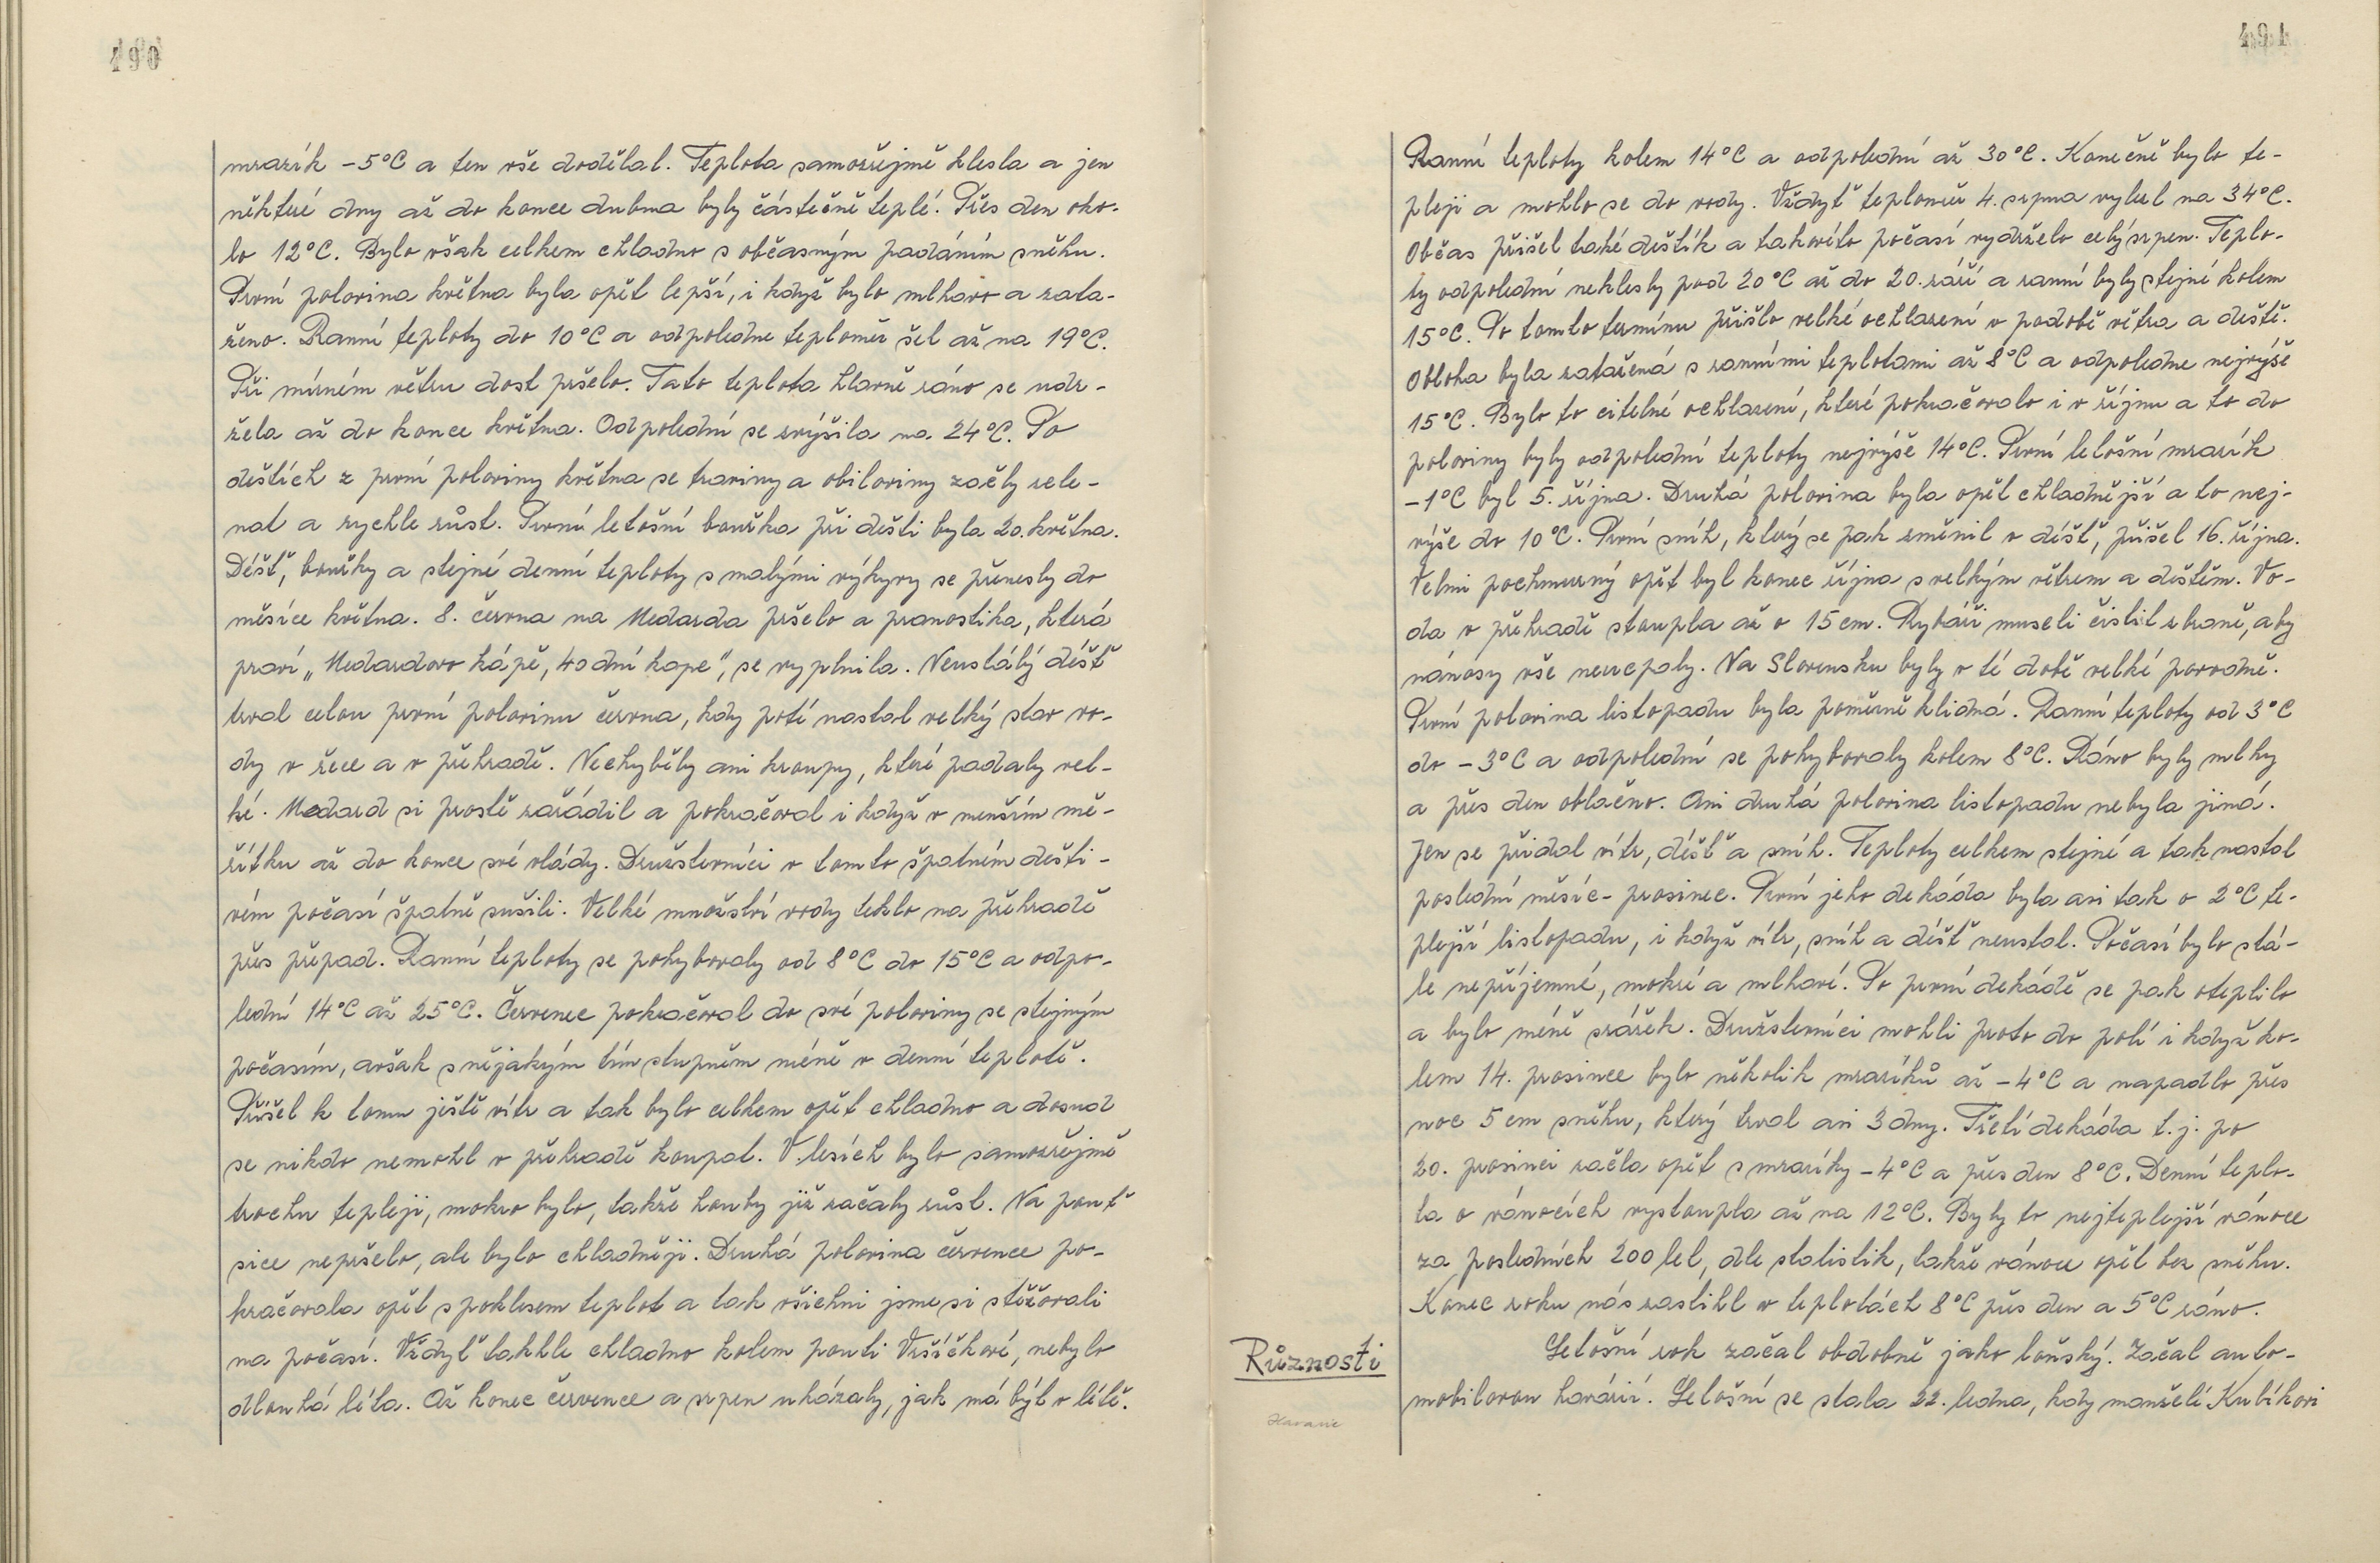 490
mrazík -5°C a ten vše dodělal. Teplota samozřejmě klesla a jen
některé dny až do konce dubna byly částečně teplé. Přes den oko-
lo 12°C. Bylo však celkem chladno s občasným padáním sněhu.
První polovina května byla opět lepší, i když bylo mlhavo a zata-
ženo. Ranní teploty do 10°C a odpoledne teploměr šel až na 19°C.
Při mírném větru dost pršelo. Tato teplota hlavně ráno se udr-
žela až do konce května. Odpolední se zvýšila na 24°C. Po
deštích z první poloviny května se traviny a obiloviny začly zele-
nat a rychle růst. První letošní bouřka při dešti byla 20. května.
Déšť, bouřky a stejné denní teploty s malými výkyvy se přenesly do
měsíce května. 8. června na Medarda pršelo a pranostika, která
praví „Medardovo kápě, 40 dní kape", se vyplnila. Neustálý déšť
trval celou první polovinu června, kdy potí nastal velký stav vo-
dy v řece a v přehradě. Nechyběly ani kroupy, které padaly vel-
ké. Medard si prostě zařádil a pokračoval i když v menším mě-
řítku až do konce své vlády. Družstevníci v tomto špatném dešti-
vém počasí špatně sušili. Velké množství vody teklo na přehradě
přes přepad. Ranní teploty se pohybovaly od 8°C do 15°C a odpo-
lední 14°C až 25°C. Červenec pokračoval do své poloviny se stejným
počasím, avšak s nějakým tím stupněm méně v denní teplotě.
Přišel k tomu ještě vítr a tak bylo celkem opět chladno a dosud
se nikdo nemohl v přehradě koupat. V lesích bylo samozřejmě
trochu tepleji, mokro bylo, takže houby již začaly růst. Na pouť
sice nepršelo, ale bylo chladněji. Druhá polovina července po-
kračovala opět s poklesem teplot a tak všichni jsme si stěžovali
na počasí. Vždyť takhle chladno kolem pouti Vršíčkové, nebylo
dlouhá léta. Až konec července a srpen ukázaly, jak má být v létě.
491
Ranní teploty kolem 14°C a odpolední až 30°C. Konečně bylo te-
pleji a mohlo se do vody. Vždyť teploměr 4. srpna vylezl na 34°C.
Občas přišel také deštík a takovéto počasí vydrželo celý srpen. Teplo-
ty odpolední neklesly pod 20°C až do 20. září a ranní byly stejné kolem
15°C. Po tomto termínu přišlo velké ochlazení v podobě větra a deště.
Obloha byla zatažená s ranními teplotami až 8°C a odpoledne nejvýše
15°C. Bylo to citelné ochlazení, které pokračovalo i v říjnu a to do
poloviny byly odpolední teploty nejvýše 14°C. První letošní mrazík
-1°C byl 5. října. Druhá polovina byla opět chladnější a to nej-
výše do 10°C. První sníh, který se pak změnil v déšť, přišel 16. října.
Velmi pochmurný opět byl konec října s velkým větrem a deštěm. Vo-
da v přehradě stoupla až o 15 cm. Rybáři museli čistit zbraně, aby
nánosy vše neucpaly. Na Slovensku byly v té době velké povodně.
První polovina listopadu byla poměrně klidná. Ranní teploty od 3°C
do -3°C a odpolední se pohybovaly kolem 8°C. Ráno byly mlhy
a přes den oblačno. Ani druhá polovina listopadu nebyla jiná.
Jen se přidal vítr, déšť a sníh. Teploty celkem stejné a tak nastal
poslední měsíc - prosinec. První jeho dekáda byla asi tak o 2°C te-
plejší listopadu, i když vítr, sníh a déšť neustal. Počasí bylo stá-
le nepříjemné, mokré a mlhavé. Po první dekádě se pak oteplilo
a bylo méně srážek. Družstevníci mohli proto do polí i když ko-
lem 14. prosince bylo několik mrazíků až -4°C a napadlo přes
noc 5 cm sněhu, který trval asi 3 dny. Třetí dekáda t.j. po
20. prosinci začla opět s mrazíky -4°C a přes den 8°C. Denní teplo-
ta o vánocích vystoupla až na 12°C. Byly to nejteplejší vánoce
za posledních 200 let, dle statistik, takže vánoce opět bez sněhu.
Konec roku nás zastihl v teplotách 8°C přes den a 5°C ráno.
Různosti
Havarie
Letošní rok začal obdobně jako loňský. Začal auto-
mobilovou havárií. Letošní se stala 22. ledna, kdy manželé Kubíkovi